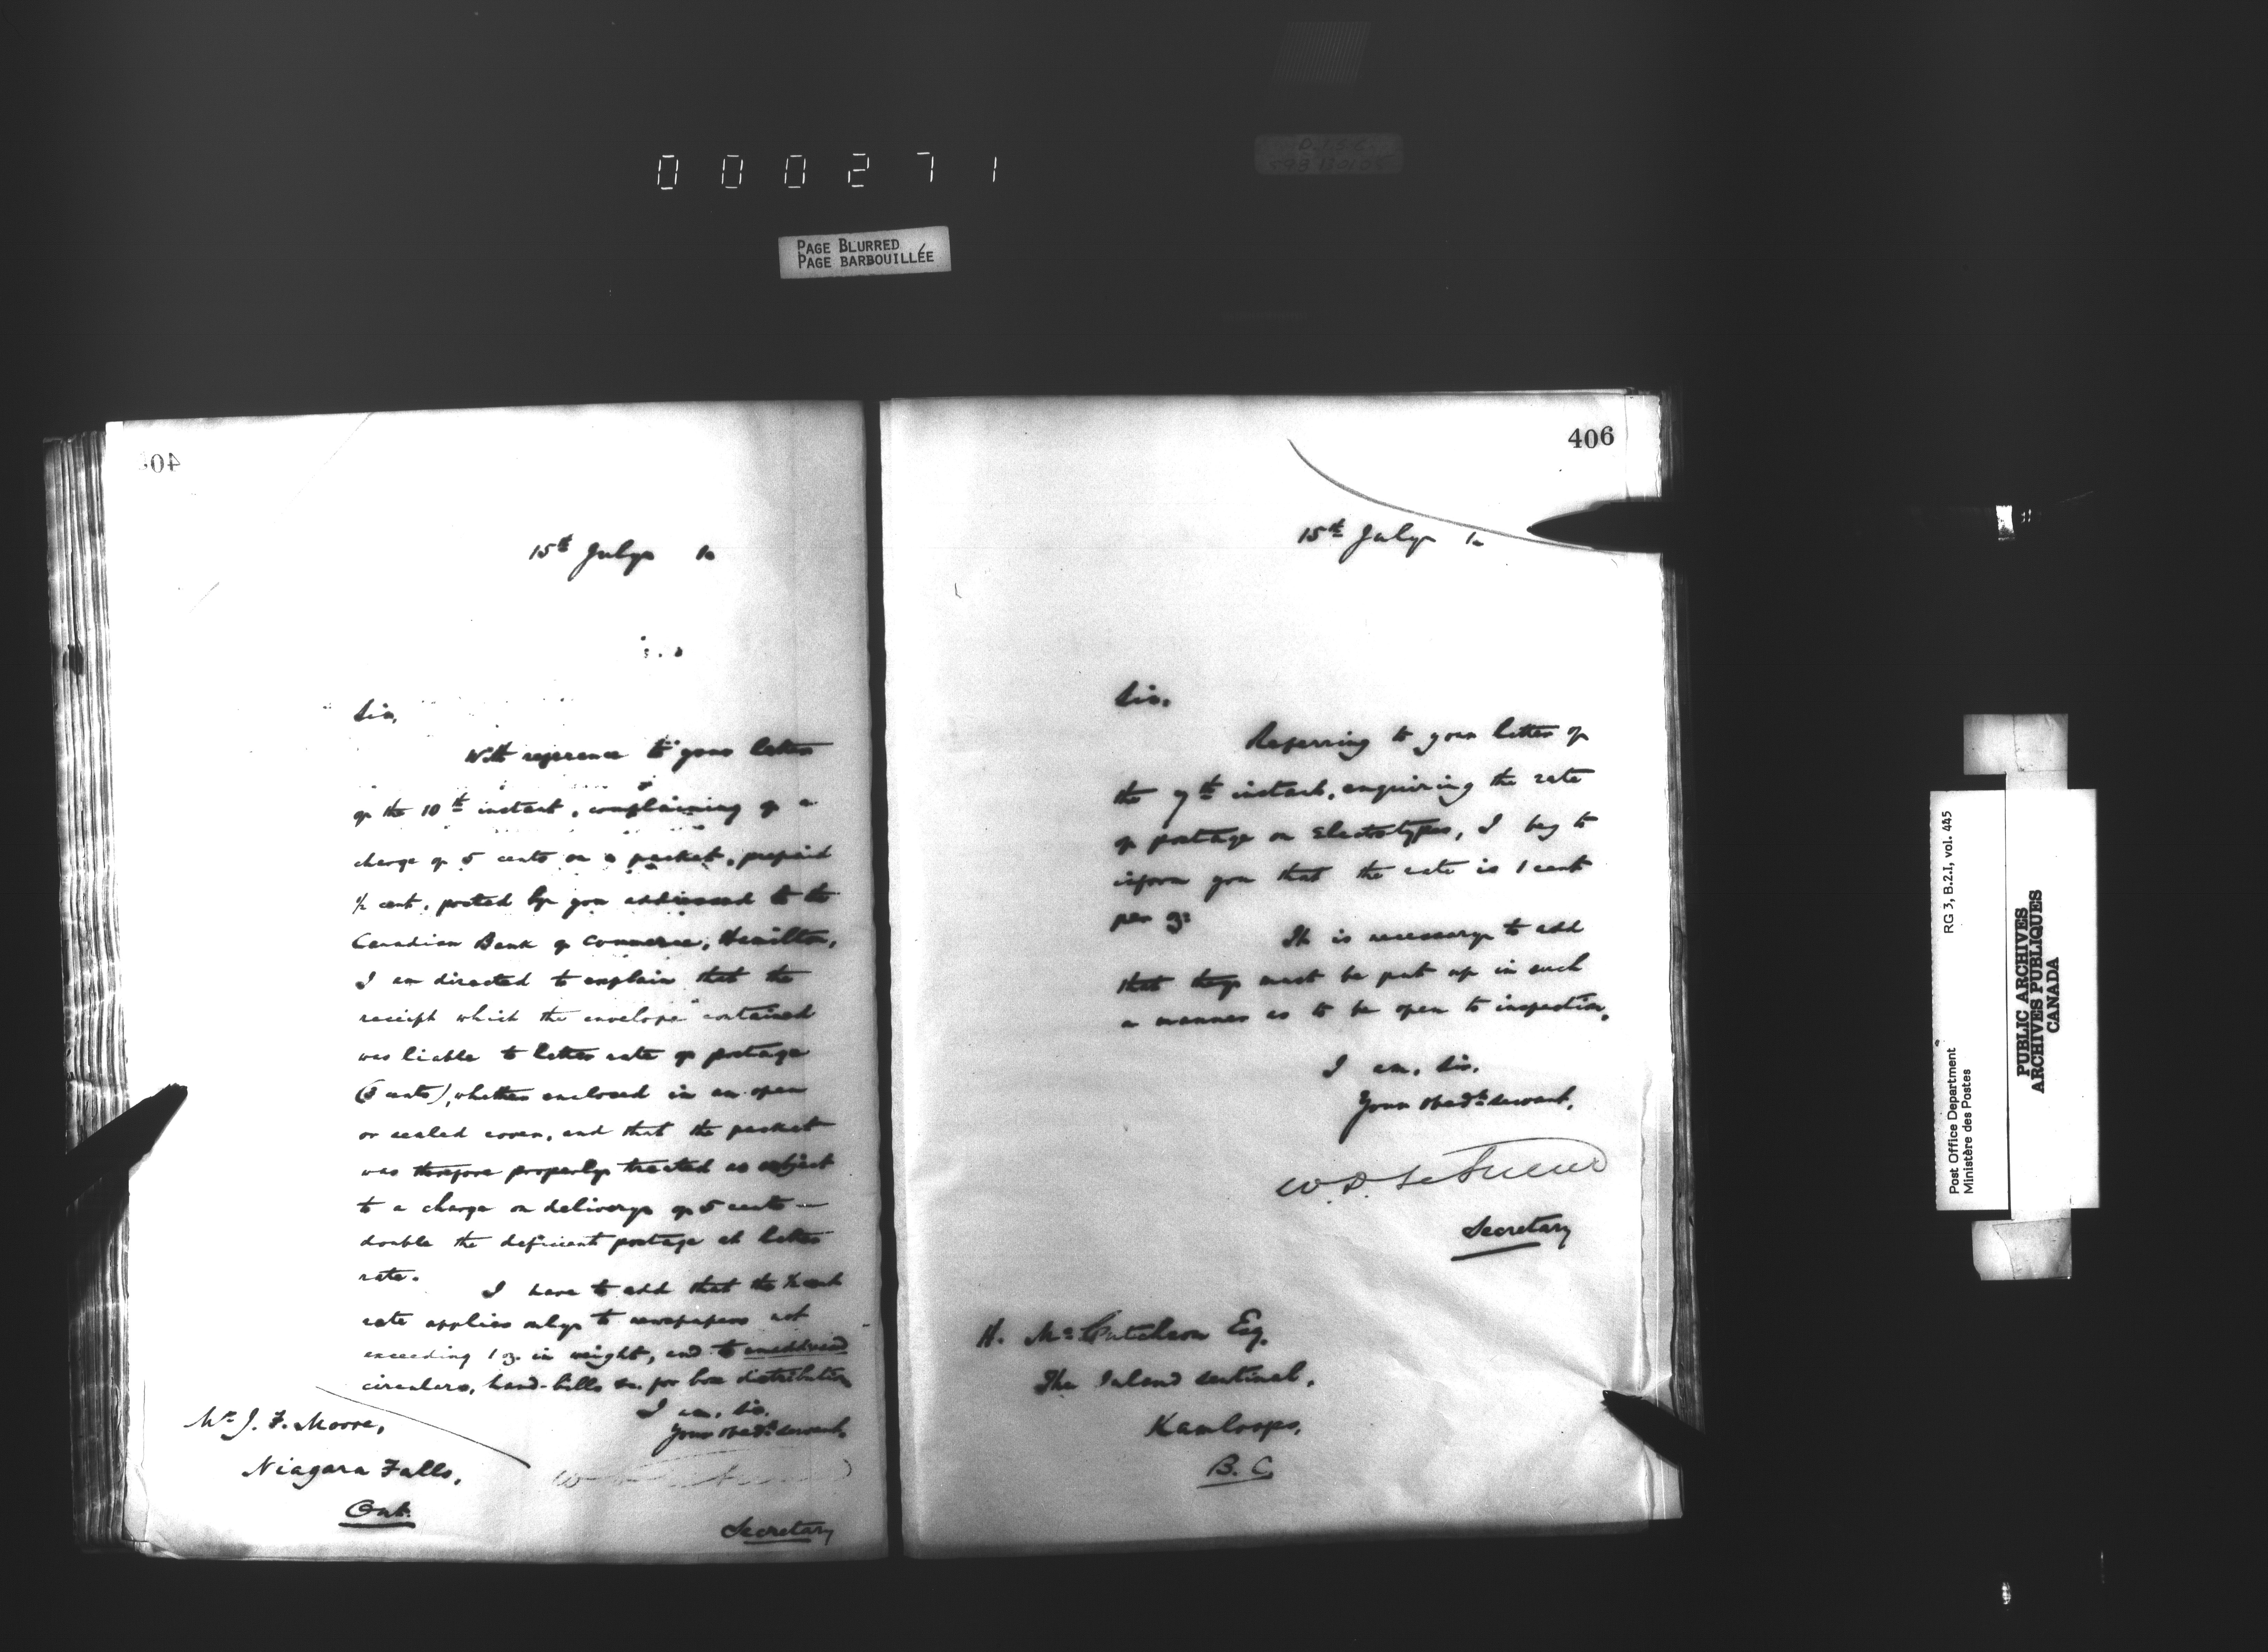 000271
PAGE BLURRED
PAGE BARBOUILLÉE
15th July
Sir,
With reference to your letter
of the 10th instant, complaining of a
charge of 5 cents on a packet, prepaid
½ cent, posted by you addressed to the
Canadian Bank of Commerce, Hamilton,
I am directed to explain that the
receipt which the envelope contained
was liable to letter rate of postage
(3 cents), whether enclosed in an open
or sealed cover, and that the packet
was therefore properly treated as subject
to a charge on delivery of 5 cents —
double the deficient postage at letter
rate.
I have to add that the ½ cent
rate applies only to newspapers not
exceeding 1 oz. in weight, and to unaddressed
circulars, hand-bills &c. for box distribution
I am, Sir,
Your obedt. servant,
Secretary
Mr J. F. Moore,
Niagara Falls,
Ont.
406
15th July
Sir,
Referring to your letter of
the 7th instant, enquiring the rate
of postage on Electrotypes, I beg to
inform you that the rate is 1 cent
per oz:
It is necessary to add
that they must be put up in such
a manner as to be open to inspection.
I am, Sir,
Your obedt. servant,
W. D. LeSueur
Secretary
H. McCutcheon Esq.
The Inland Sentinel,
Kamloops,
B. C.
Post Office Department
Ministère des Postes
RG 3, B.2.I, vol. 445
PUBLIC ARCHIVES
ARCHIVES PUBLIQUES
CANADA